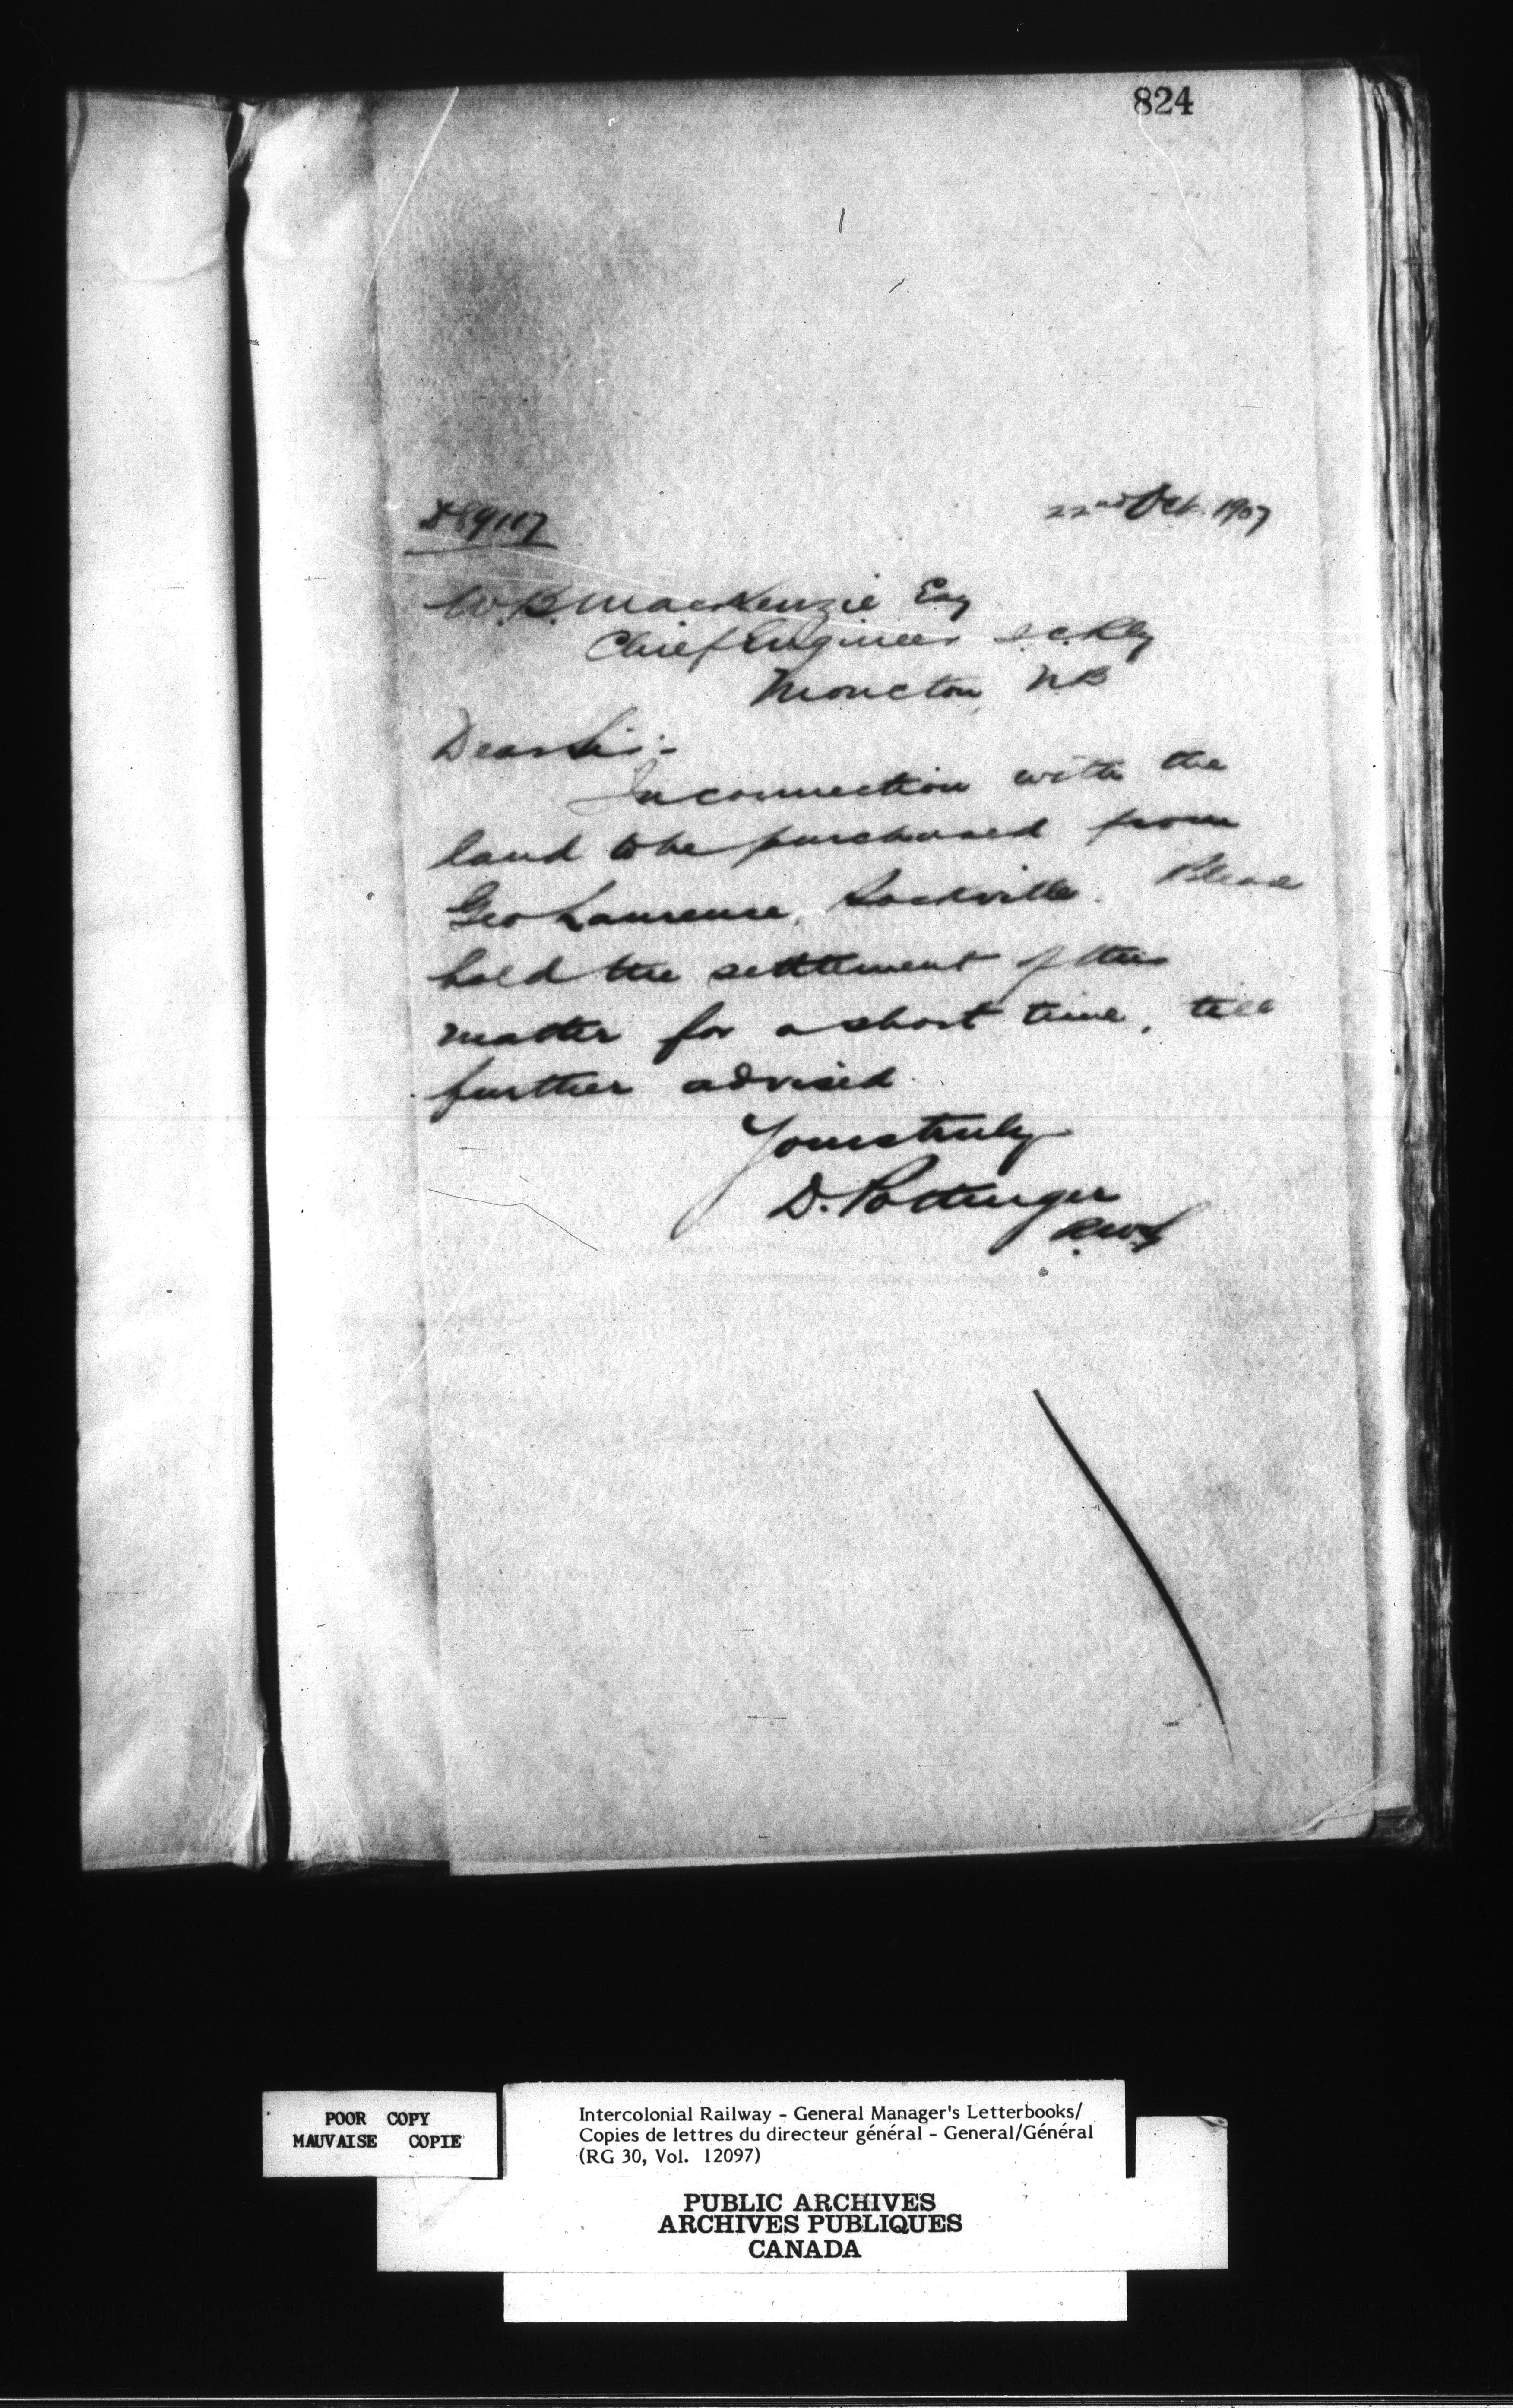 824
22nd Oct. 1907
W. B. MacKenzie Esq
Chief Engineer I.C.Rly
Moncton, NB
Dear Sir:-
In connection with the
land to be purchased from
Geo Lawrence, Sackville. Please
hold the settlement of this
matter for a short time, till
further advised.
Yours truly
D. Pottinger
POOR COPY
MAUVAISE COPIE
Intercolonial Railway - General Manager's Letterbooks/
Copies de lettres du directeur général - General/Général
(RG 30, Vol. 12097)
PUBLIC ARCHIVES
ARCHIVES PUBLIQUES
CANADA